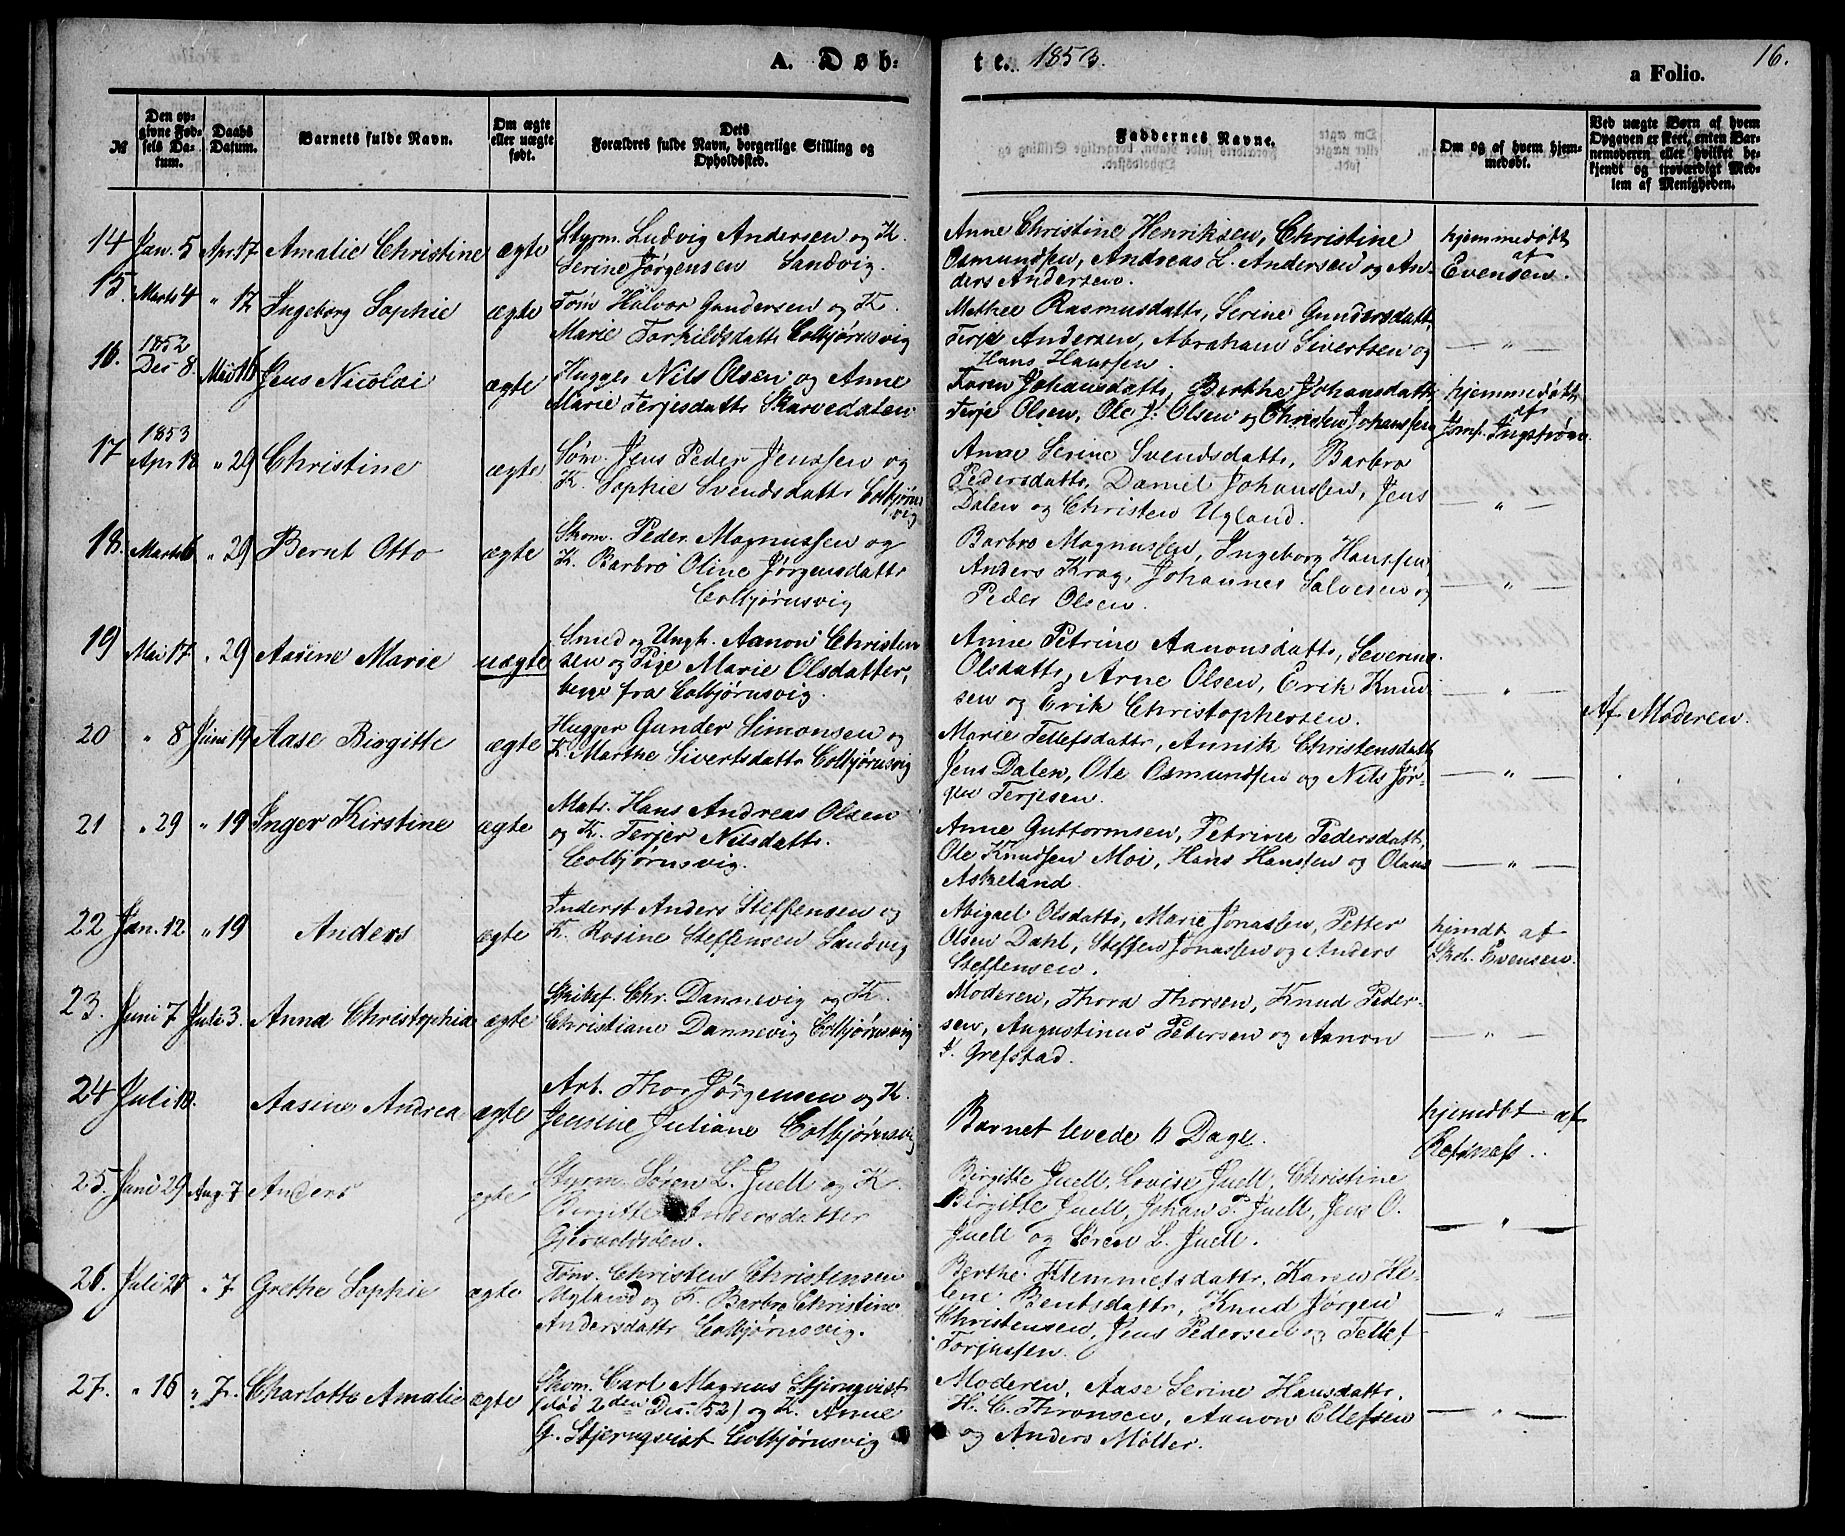 A. Døb-
te. 1853.
a Folio.
16.
№
Den op-
givne Fød-
sels Da-
tum.
Daabs
Datum.
Barnets fulde Navn.
Om ægte
eller uægte
født.
Dets
Forældres fulde Navn, borgerlige Stilling og
Opholdssted.
Faddernes Navne.
Om og af hvem hjem-
medøbt.
Ved uægte Børn af hvem
Opgaven er skeet, enten Bar-
nemoderen eller hvilket be-
kjendt og troværdigt Med-
lem af Menigheden.
14 Jan. 5 Apr. 17 Amalie Christine ægte
Styrm. Ludvig Andersen og K.
Serine Jørgensen Sandvig.
Anne Christine Henriksen, Christine
Osmundsen, Andreas L. Andersen og An-
ders Andersen.
hjemmedøbt
af
Evensen.
15. Marts 4 " 17 Ingeborg Sophie ægte
Tøm. Halvor Gundersen og K.
Marie Torkildsdattr Colbjørnsvig
Mathea Rasmusdattr, Serine Gundersdattr
Terje Andersen, Abraham Sivertsen og
Hans Hanssen.
— " —
16. 1852
Des 8. Mai 16 Jens Nicolai ægte
Hugger Nils Olsen og Anne
Marie Terjesdattr Skarvedalen
Karen Johansdattr, Berthe Johansdattr
Terje Olsen, Ole J. Olsen og Christen Johanssen
hjemmedøbt
af
Jomf. Ingstrøm.
17 1853
Apr 18 " 29 Christine ægte
Søm. Jens Peder Jenssen og
K. Sophie Svendsdattr Colbjørns
vig
Anne Serine Svendsdattr, Barbro
Pedersdattr, Daniel Johanssen, Jens
Dalen og Christen Ugland.
— " —
18. Marts 6 " 29 Bernt Otto ægte
Skom. Peder Magnussen og
K. Barbro Oline Jørgensdattr
Colbjørnsvig
Barbro Magnussen, Ingeborg Hanssen,
Anders Krag, Johannes Salvesen og
Peder Olsen.
— " —
19 Mai 17 " 29 Aasine Marie uægte
Smed og Ungk. Aanon Christen
sen og Pige Marie Olsdatter,
begge fra Colbjørnsvig.
Anne Petrine Aanonsdattr, Severine
Olsdattr, Arne Olsen, Erik Knud
sen og Erik Christophersen.
— " —
Af Moderen.
20 " 8 Juni 19 Aase Birgitte ægte
Hugger Gunder Simonsen og
K. Marthe Sivertsdattr Colbjørnsvig
Marie Tellefsdattr, Annik Christensdattr
Jens Dalen, Ole Osmundsen og Nils Jør-
gen Terjesen.
— " —
21 " 29 " 19 Inger Kirstine ægte
Matr. Hans Andreas Olsen
og K. Terjer Nilsdattr.
Colbjørnsvig.
Anne Guttormsen, Petrine Pedersdattr,
Ole Knudsen Moi, Hans Hanssen og Olaus
Askeland.
— " —
22 Jan. 12 " 19 Anders ægte
Inderst Anders Steffensen og
K. Rosine Steffensen Sandvig
Abigael Olsdattr, Marie Jonassen, Petter
Olsen Dahl, Steffen Jonassen og Anders
Steffensen.
hjmdt af
Skol. Evensen.
23. Juni 7 Juli 3. Anna Christophia ægte
Skibsf. Chr. Dannevig og K.
Christiane Dannevig Colbjørnsvig
Moderen, Thora Thorsen, Knud Peder-
sen, Augustinus Pedersen og Aanon
J. Grefstad.
— " —
24 Juli 18. Aasine Andrea ægte
Arb. Thor Jørgensen og K.
Jensine Juliane Colbjørnsvig
Barnet levede 6 Dage.
hjemdbt af
Refsnæss.
25. Juni 29 Aug. 7 Anders ægte
Styrm. Søren L. Juell og K.
Birgitte Andersdatter
Gjervoldsøen.
Birgitte Juell, Lovise Juell, Christine
Birgitte Juell, Johan P. Juell, Jens O.
Juell og Søren L. Juell.
— " —
26. Juli 20 " 7 Grethe Sophie ægte
Tøm. Christen Christensen
Ugland og K. Barbro Christine
Andersdattr Colbjørnsvig.
Berthe Klemmetsdattr, Karen He-
lene Bentsdattr, Knud Jørgen
Christensen, Jens Pedersen og Tellef
Torjussen.
— " —
27. " 16 " 7. Charlotte Amalie ægte
Skom. Carl Magnus Stjernqvist
(død 2den Des. 52) og K. Anne
G. Stjernqvist Colbjørnsvig
Moderen, Aase Serine Hansdattr,
H. C. Thronsen, Aanon Ellefsen
og Anders Møller.
— " —